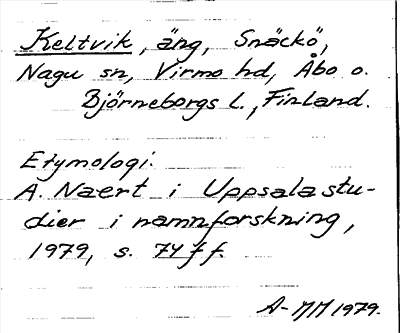 Keltvik, äng, Snäckö,
Nagu sn, Virmo hd, Åbo o.
Björneborgs l., Finland.
Etymologi:
A. Naert i Uppsalastu-
dier i namnforskning,
1979, s. 74 ff.
A-MM 1979.